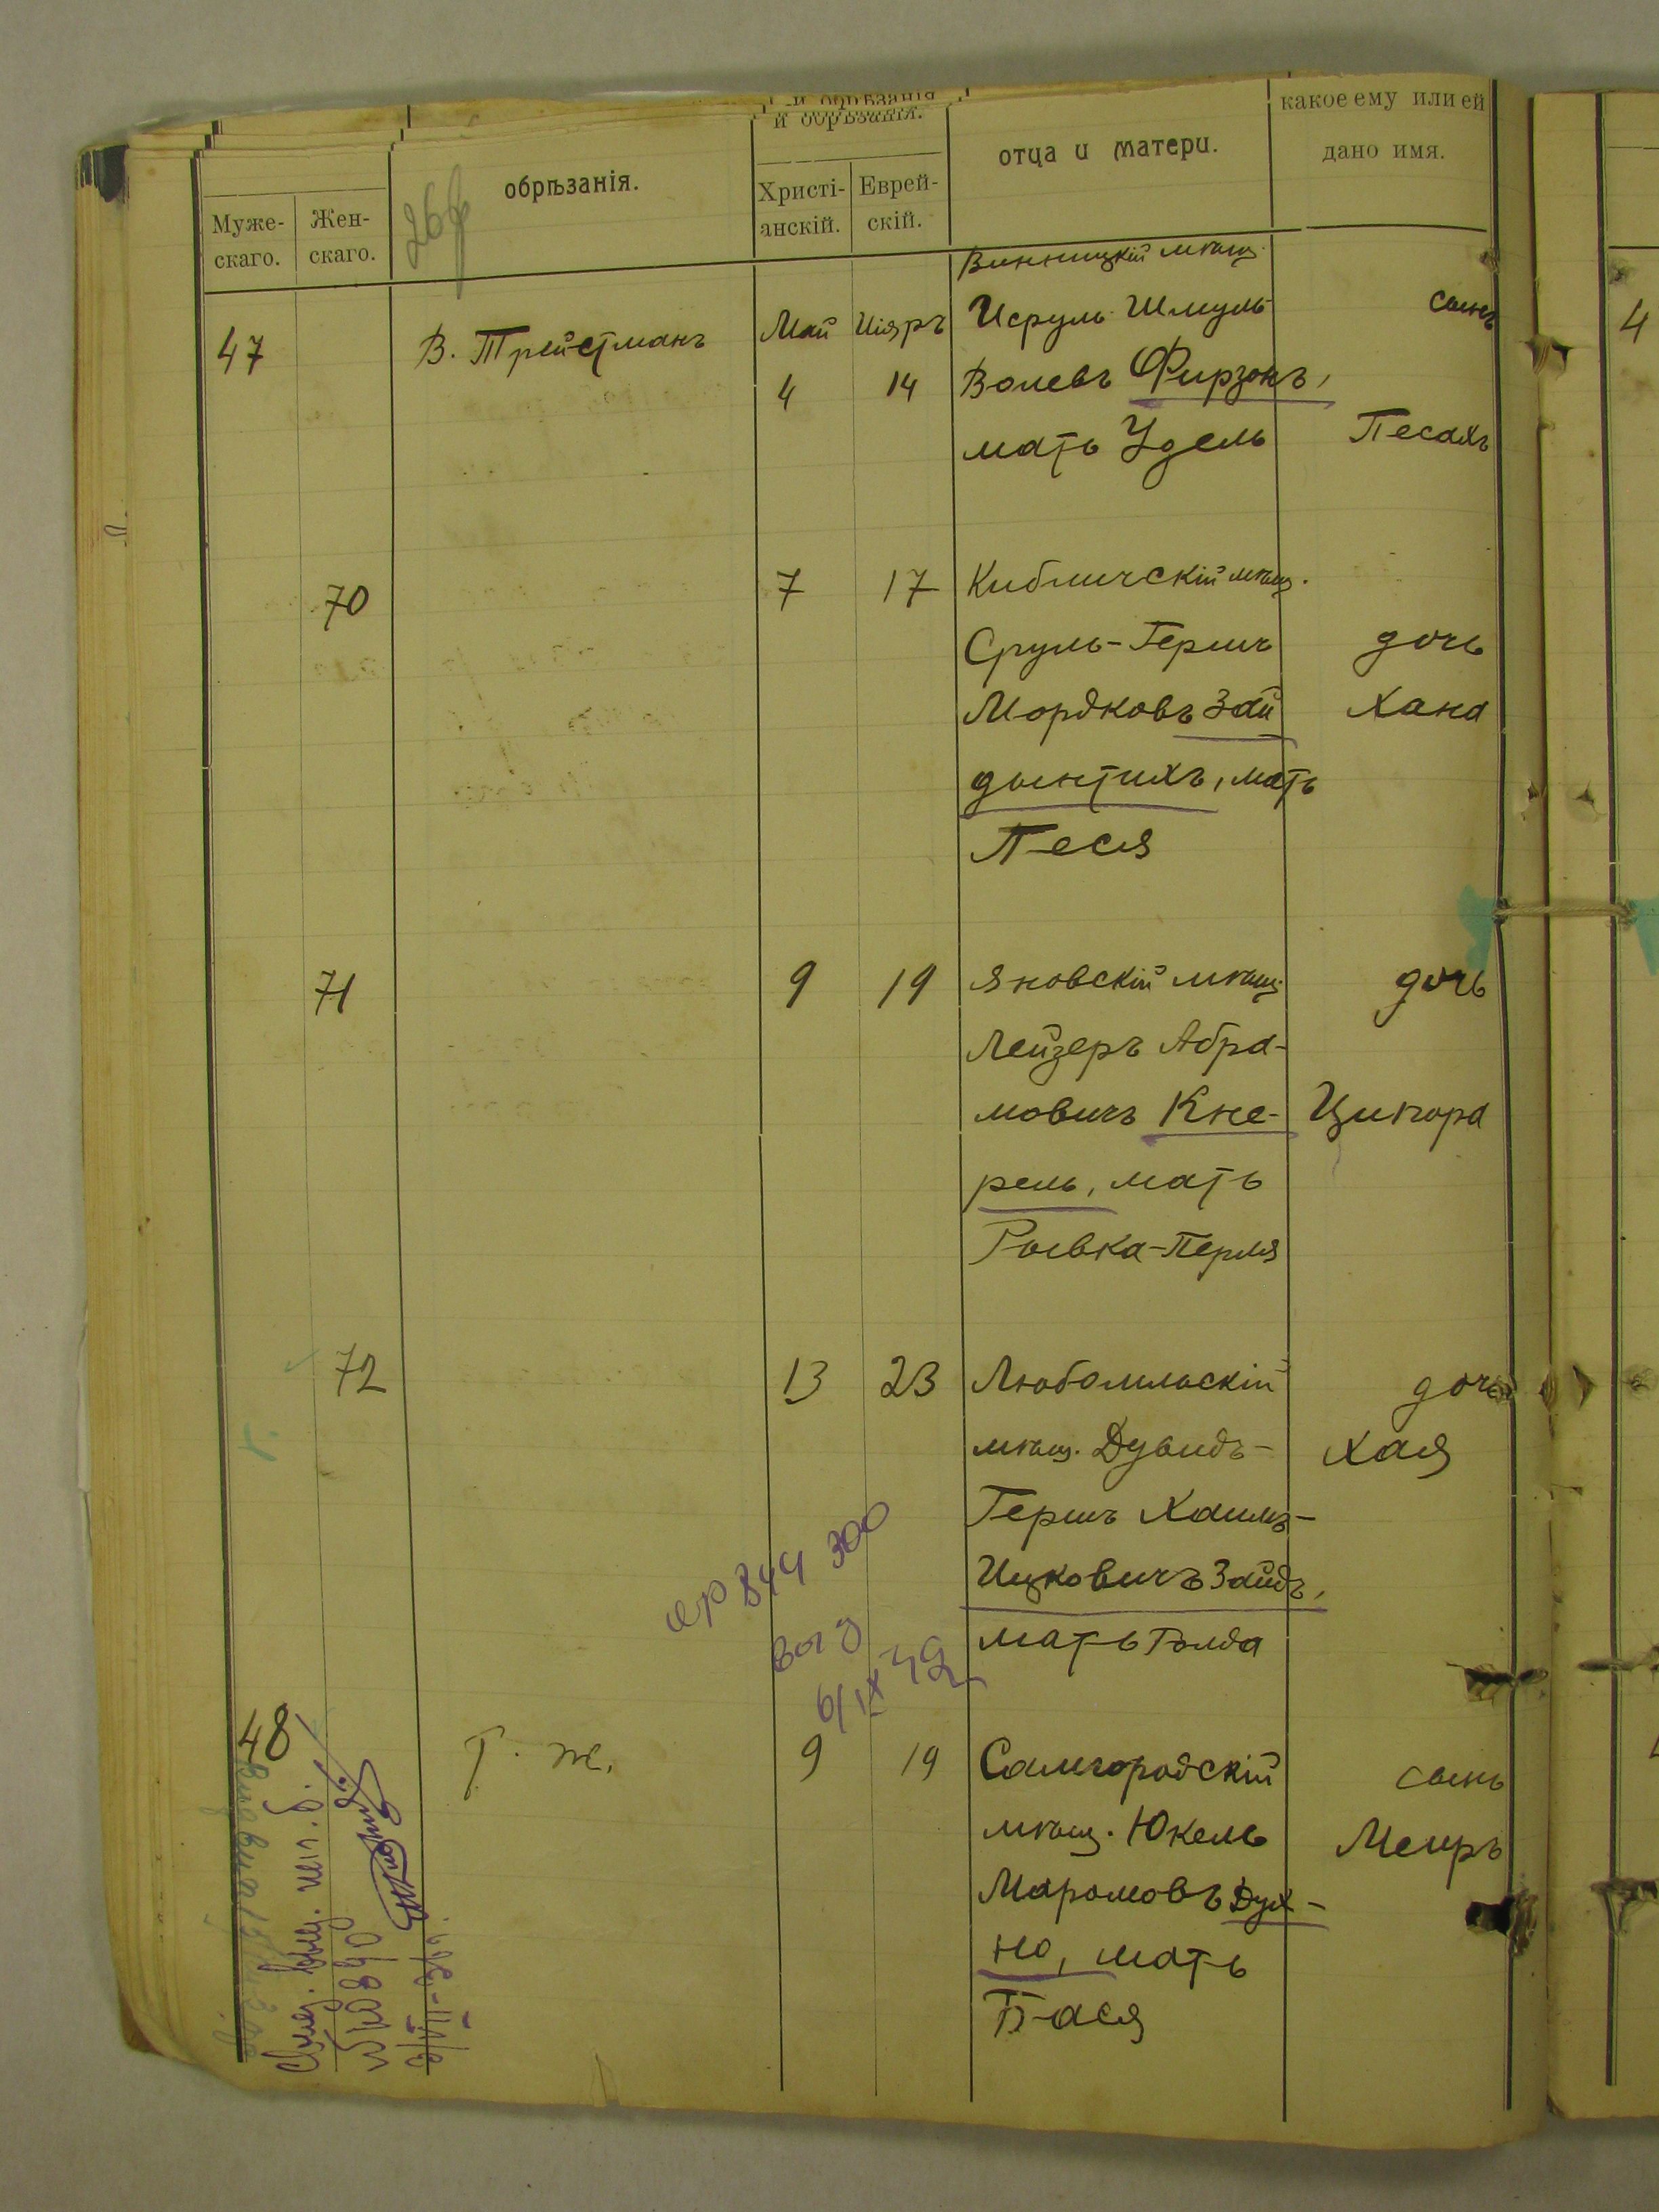 и обрѣзанія.
и обрѣзанія.
какое ему или ей
дано имя.
отца и матери.
обрѣзанія.
Христі-
анскій.
Еврей-
скій.
Муже-
скаго.
Жен-
скаго.
Винницкій мѣщ.
47 В. Трейстманъ Май Ияръ Исруль Шмуль сынъ
4 14 Волевъ Фирзонъ,
мать Удель Песахъ
70 7 17 Кибличскій мѣщ.
Сруль-Гершъ дочь
Мордковъ Зай Хана
дынтихъ, мать
Песя
71 9 19 Яновскій мѣщ. дочь
Лейзеръ Абра-
мовичъ Кне- Ципора
рель, мать
Рывка-Перля
72 13 23 Любомльскій дочь
мѣщ. Дувидъ- Хая
Гершъ Хаимъ-
Ицковичъ Зайдъ,
мать Голда
844 300
6/IX 42
48 Т. ж. 9 19 Самгородскій сынъ
мѣщ. Юкель Меиръ
Маромовъ Дух-
но, мать
Бася
4